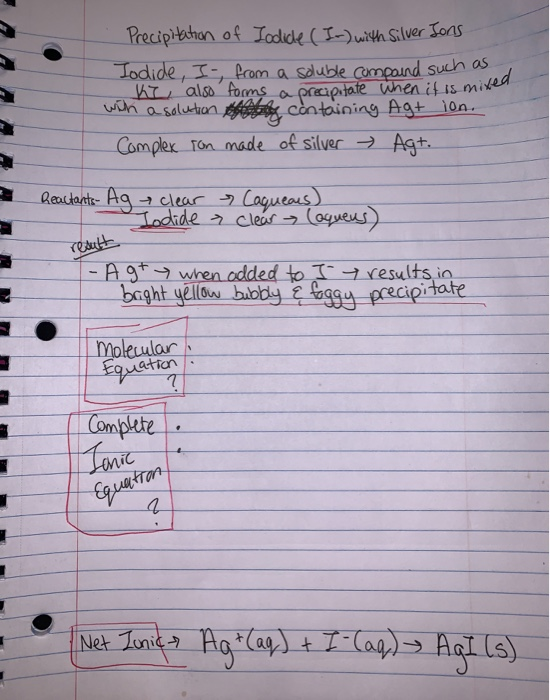 Precipitation of Iodide (I-) with Silver Ions
Iodide, I-, from a soluble compound such as
KI, also forms a precipitate when it is mixed
with a solution containing Ag+ ion.
Complex ion made of silver → Ag+.
Reactants- Ag → clear → (aqueous)
Iodide → clear → (aqueus)
result
- Ag+ → when added to I- → results in
bright yellow bubbly & foggy precipitate
Molecular :
Equation
?
Complete :
Ionic
Equation
?
Net Ionic → Ag+(aq) + I-(aq) → AgI (s)